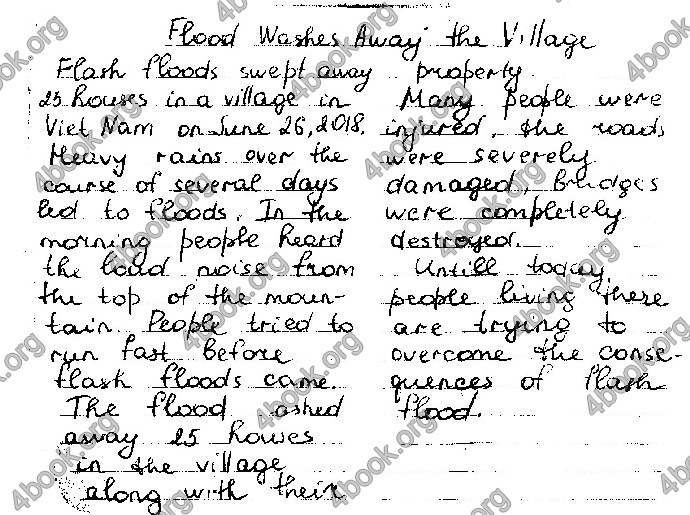 Flood Washes Away the Village
Flash floods swept away
25 houses in a village in
Viet Nam on June 26, 2018.
Heavy rains over the
course of several days
led to floods. In the
morning people heard
the loud noise from
the top of the moun-
tain. People tried to
run fast before
flash floods came.
The flood ashed
away 25 houses
in the village
along with their
property.
Many people were
injured, the roads
were severely
damaged, bridges
were completely
destroyed.
Untill today,
people living there
are trying to
overcome the conse-
quences of flash
flood.
4book.org